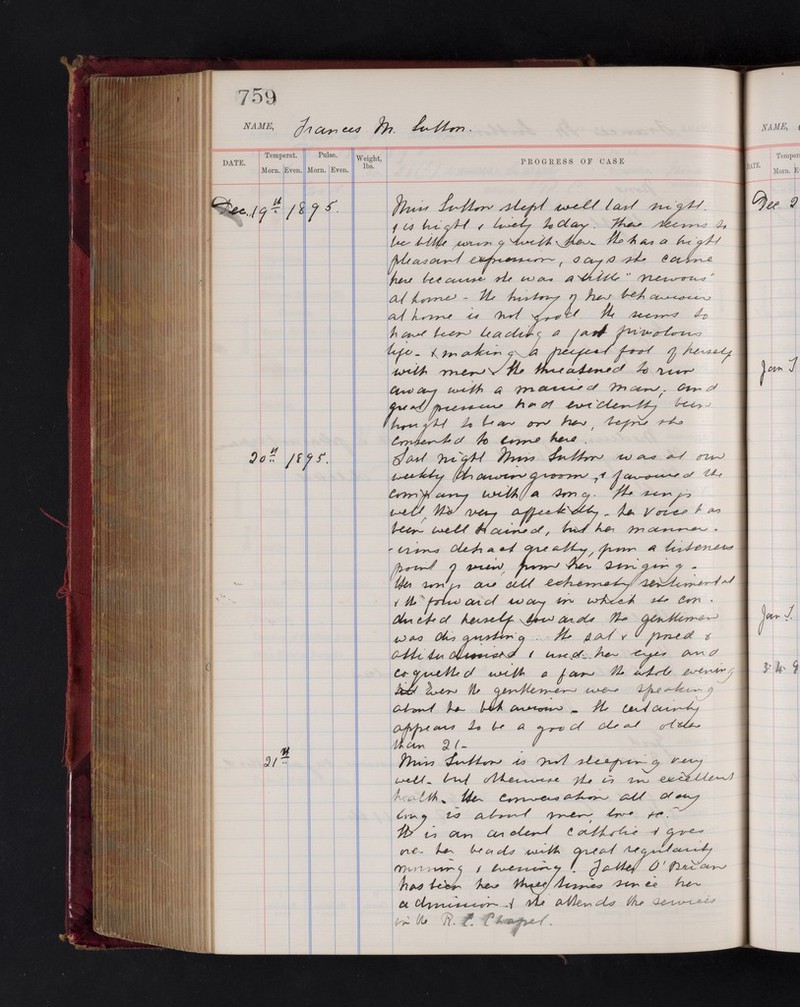 759
NAME, Frances M. Sutton.
DATE. Temperat. Pulse. Weight, lbs. PROGRESS OF CASE
Morn. Even. Morn. Even.
Dec. 19th 1895. Miss Sutton slept well last night.
& is bright & lively today. There seems to
be little wrong with her. She has a bright
pleasant expression, says she came
here because she was a little "nervous"
at home - The history of her behaviour
at home is not good. She seems to
have been leading a fast frivolous
life - & making a perfect fool of herself
with men & she threatened to run
away with a married man, and
great pressure had evidently been
brought to bear on her, before she
consented to come here.
20th 1895. Last night Miss Sutton was at our
weekly drawingroom, & favoured the
company with a song. She sings
well, tho' very affectedly - her voice has
been well trained, but her manner-
-isms detract greatly, from a listeners
point of view, from her singing.
Her songs are all extremely sentimental
& the forward way in which she con-
ducted herself towards the gentlemen
was disgusting. She sat & posed &
attitudinised & used her eyes and
coquetted with a fan the whole evening
Even the gentlemen were speaking
about her behaviour - She certainly
appears to be a good deal older
than 21 -
21st Miss Sutton is not sleeping very
well - but otherwise she is in excellent
health. Her conversation all day
long is about men, love &c.
She is an ardent Catholic & goes
over her beads with great regularity
morning & evening. Father O'Brian
has been here three times since her
admission & she attends the services
in the R. C. Chapel.
NAME,
DATE. Temper
Morn. E
Dec 2
Jan
Jan